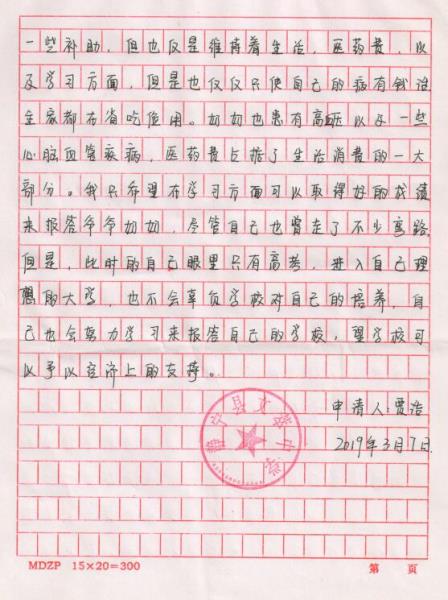 一些补助，但也仅是维持着生活，医药费，以
及学习方面，但是也仅仅只使自己的病有钱治
全家都在省吃俭用。奶奶也患有高血压以及一些
心脑血管疾病，医药费占据了生活消费的一大
部分。我只希望在学习方面可以取得好的成绩
来报答爷爷奶奶，尽管自己也曾走了不少弯路
但是，此时的自己眼里只有高考，进入自己理
想的大学，也不会辜负学校对自己的培养，自
己也会努力学习来报答自己的学校，望学校可
以予以经济上的支持。
申请人：贾浩
2019年3月7日
静宁县文萃中学
MDZP 15×20=300
第 页